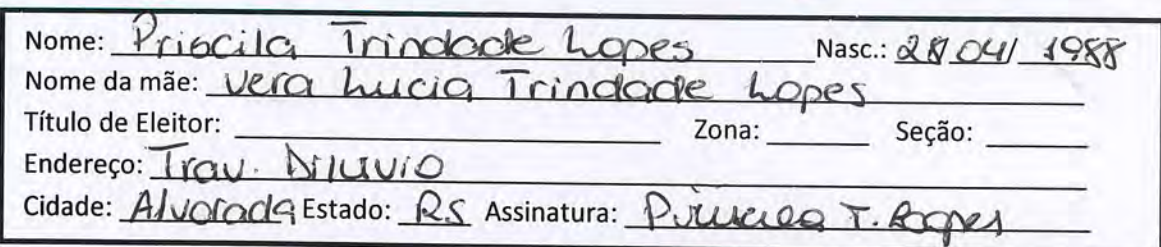 Nome: Priscila Trindade Lopes Nasc.: 28/04/1988
Nome da mãe: Vera Lucia Trindade Lopes
Título de Eleitor: Zona: Seção:
Endereço: Trav. Diluvio
Cidade: Alvorada Estado: RS Assinatura: T. Lopes